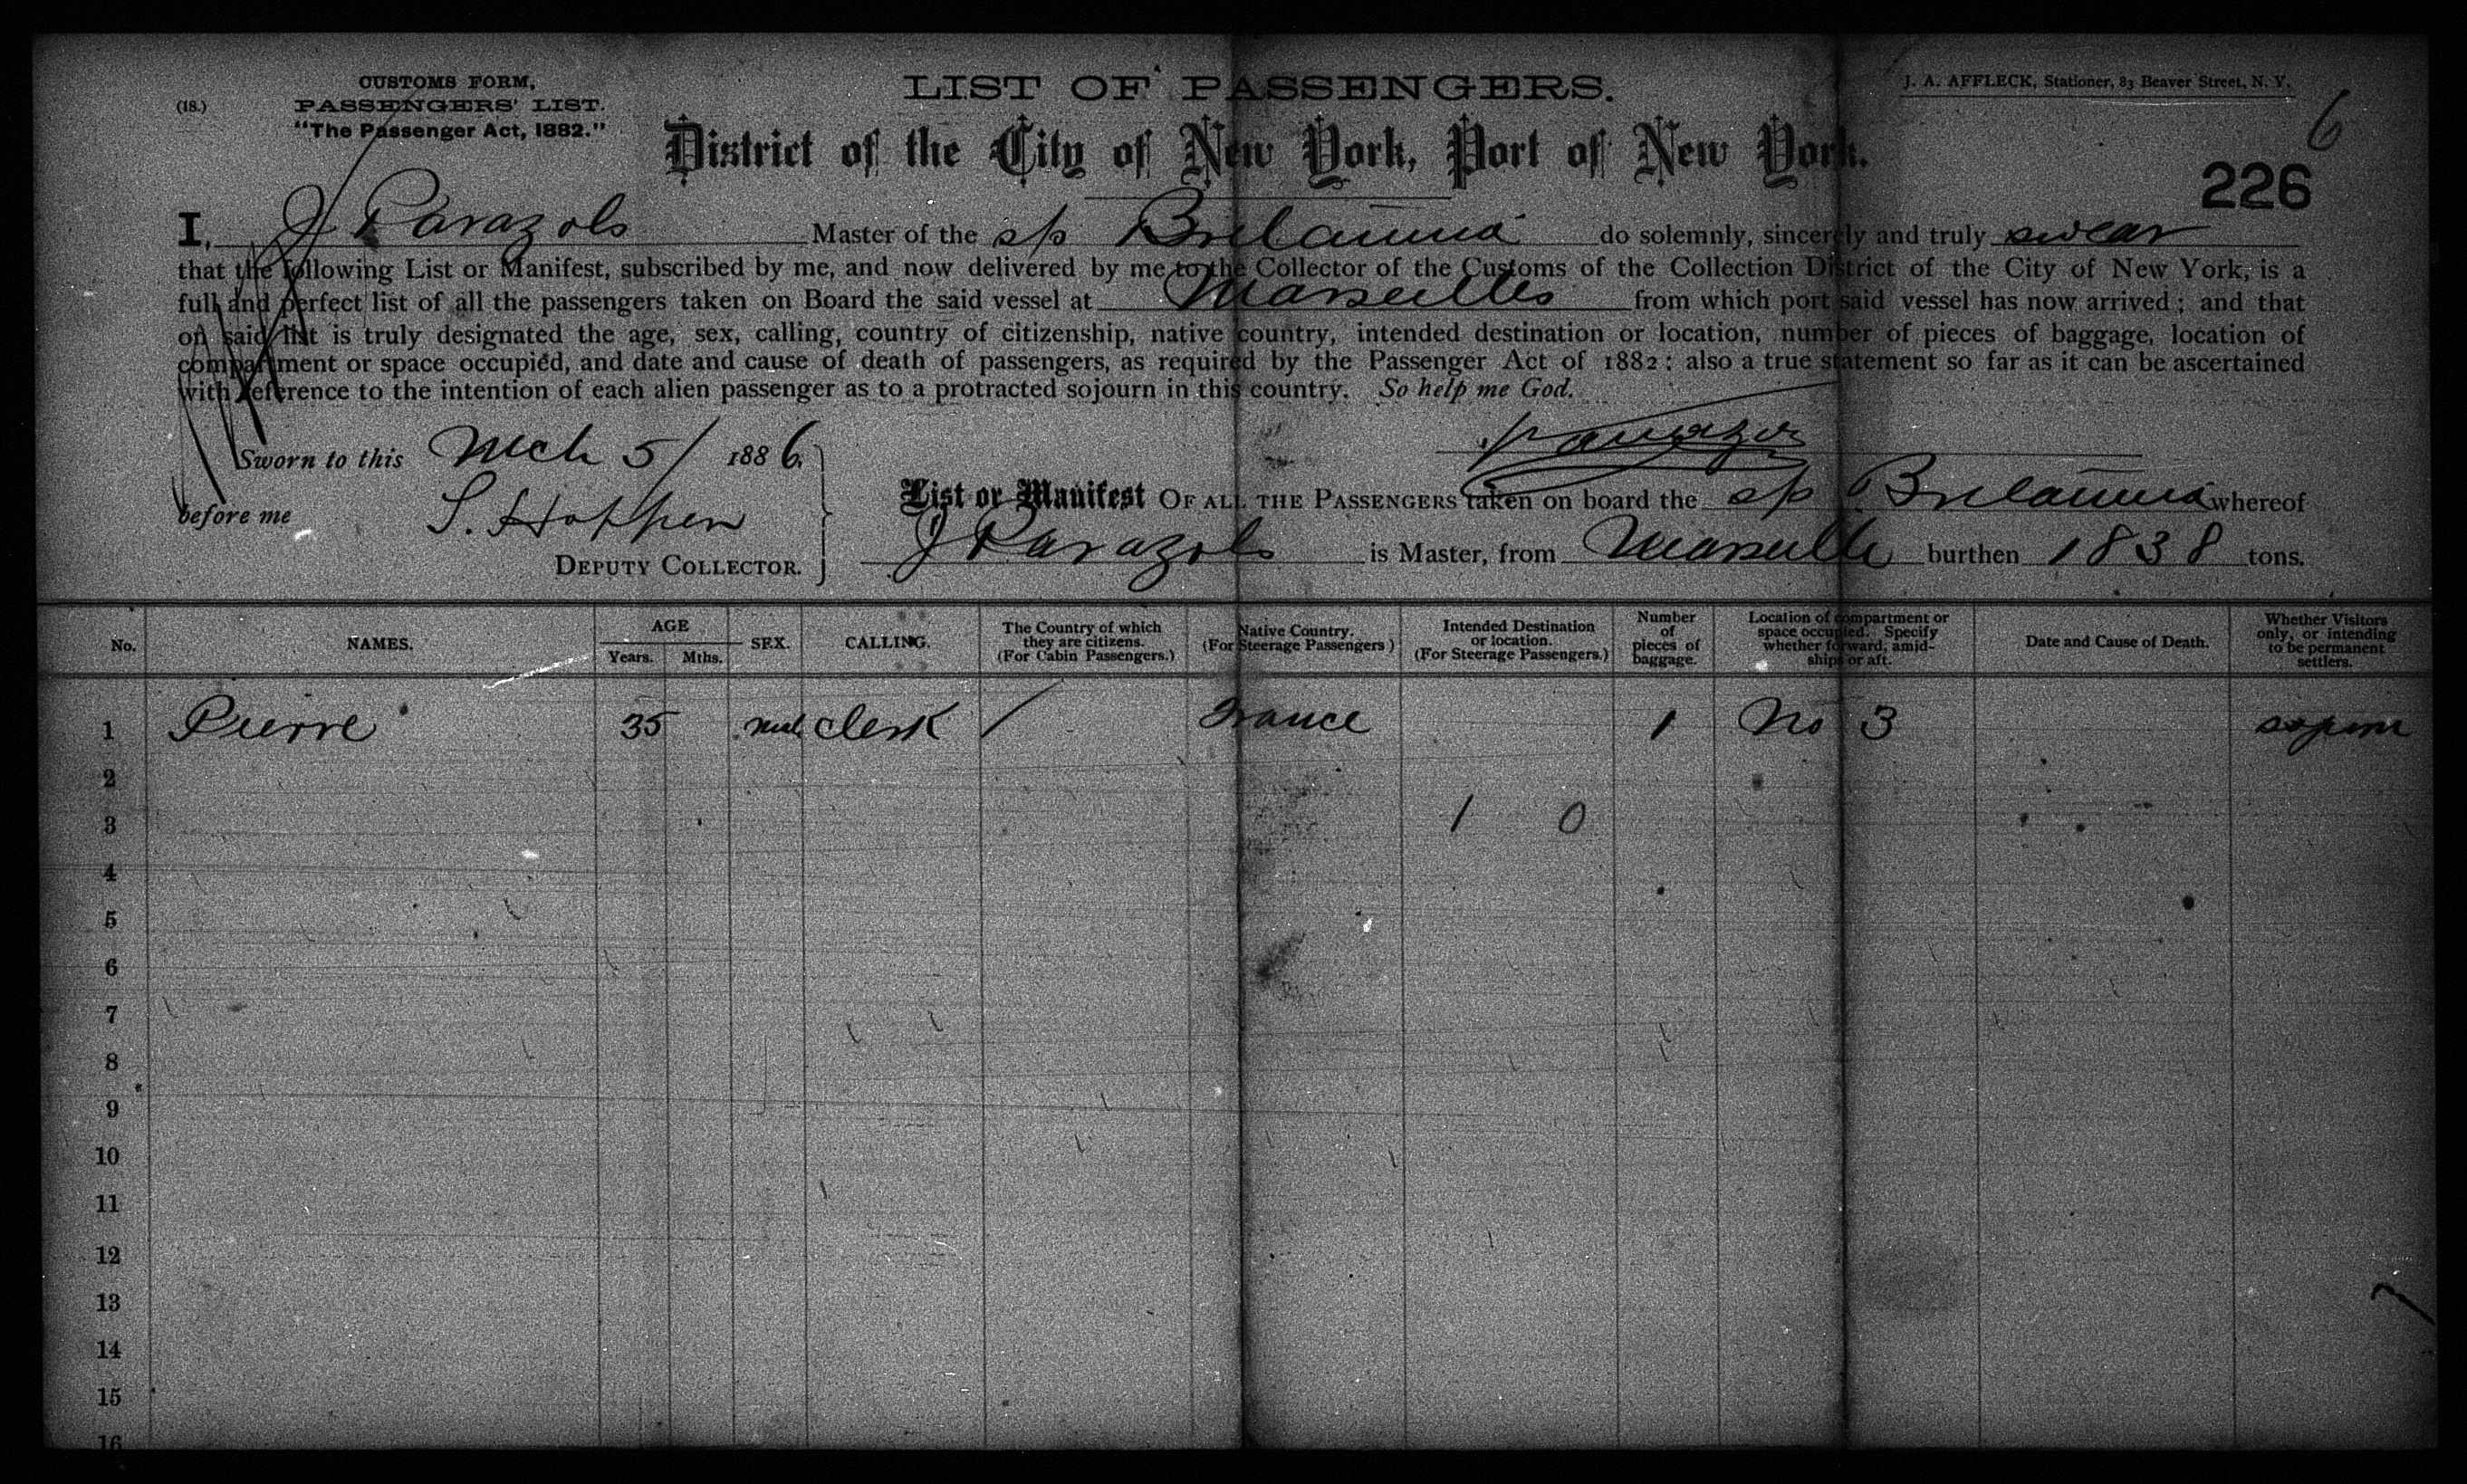 CUSTOMS FORM,
(18.) PASSENGERS' LIST.
"The Passenger Act, 1882."
LIST OF PASSENGERS.
J. A. AFFLECK, Stationer, 83 Beaver Street, N. Y.
6
District of the City of New York, Port of New York.
226
I, J Parazols Master of the s/s Britannia do solemnly, sincerely and truly swear
that the following List or Manifest, subscribed by me, and now delivered by me to the Collector of the Customs of the Collection District of the City of New York, is a
full and perfect list of all the passengers taken on Board the said vessel at Marseilles from which port said vessel has now arrived; and that
on said list is truly designated the age, sex, calling, country of citizenship, native country, intended destination or location, number of pieces of baggage, location of
compartment or space occupied, and date and cause of death of passengers, as required by the Passenger Act of 1882: also a true statement so far as it can be ascertained
with reference to the intention of each alien passenger as to a protracted sojourn in this country. So help me God.
Sworn to this Mch 5/ 1886.
before me S. Hoppen
DEPUTY COLLECTOR.
List or Manifest OF ALL THE PASSENGERS taken on board the s/s Britannia whereof
J Parazols is Master, from Marseille burthen 1838 tons.
No. NAMES. AGE Years. Mths. SEX. CALLING. The Country of which they are citizens. (For Cabin Passengers.) Native Country. (For Steerage Passengers) Intended Destination or location. (For Steerage Passengers.) Number of pieces of baggage. Location of compartment or space occupied. Specify whether forward, amidships or aft. Date and Cause of Death. Whether Visitors only, or intending to be permanent settlers.
1 Pierre 35 clerk / France 1 No 3
2
3 1 0
4
5
6
7
8
9
10
11
12
13
14
15
16